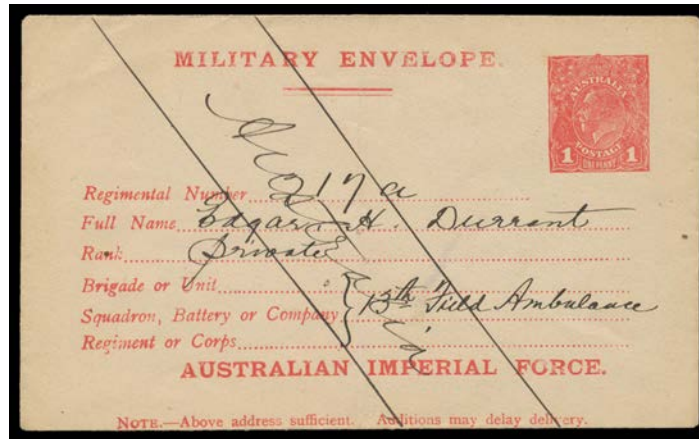 MILITARY ENVELOPE.
AUSTRALIA
POSTAGE
1 ONE PENNY 1
Regimental Number 217a
Full Name Edgar H. Durrant
Rank Private
Brigade or Unit
Squadron, Battery or Company 13th Field Ambulance
Regiment or Corps
Australia
AUSTRALIAN IMPERIAL FORCE.
NOTE.—Above address sufficient. Additions may delay delivery.